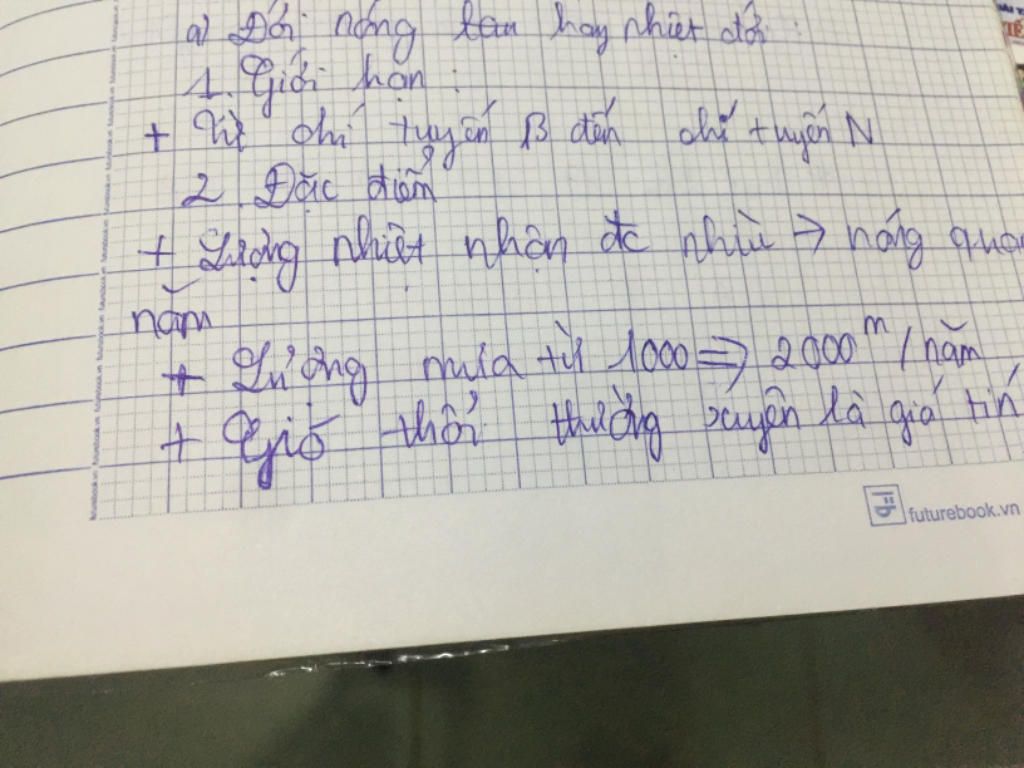 a) Đới nóng hay nhiệt đới:
1. Giới hạn:
+ Từ chí tuyến B đến chí tuyến N
2. Đặc điểm
+ Lượng nhiệt nhận đc nhìu → nóng quan
năm
+ Lượng mưa từ 1000 => 2000 m/năm
+ Gió thổi thường xuyên là gió tín
futurebook.vn